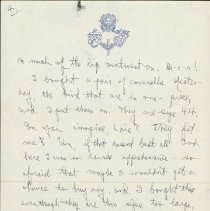 4.
so much of the lip ointment on. Br-r-r!
I bought a pair of coveralls yester-
day, the kind that are in one-piece,
and I put them on. They are size 44.
Can you imagine Lois? They fit
me? Yes, if that doesn't beat all. And
here I was so darned apprehensive - so
afraid that maybe I wouldn't get a
chance to buy any, and I bought this
even though they are two sizes too large,